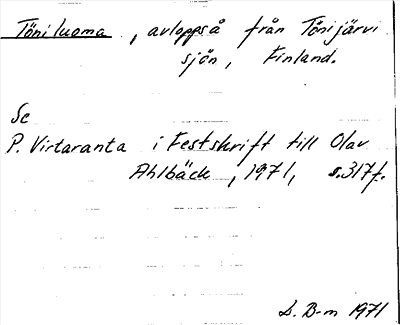 Töniluoma, avloppså från Tönijärvi
sjön, Finland.
Se
P. Virtaranta i Festskrift till Olav
Ahlbäck, 1971, s.317f.
S. B-m 1971